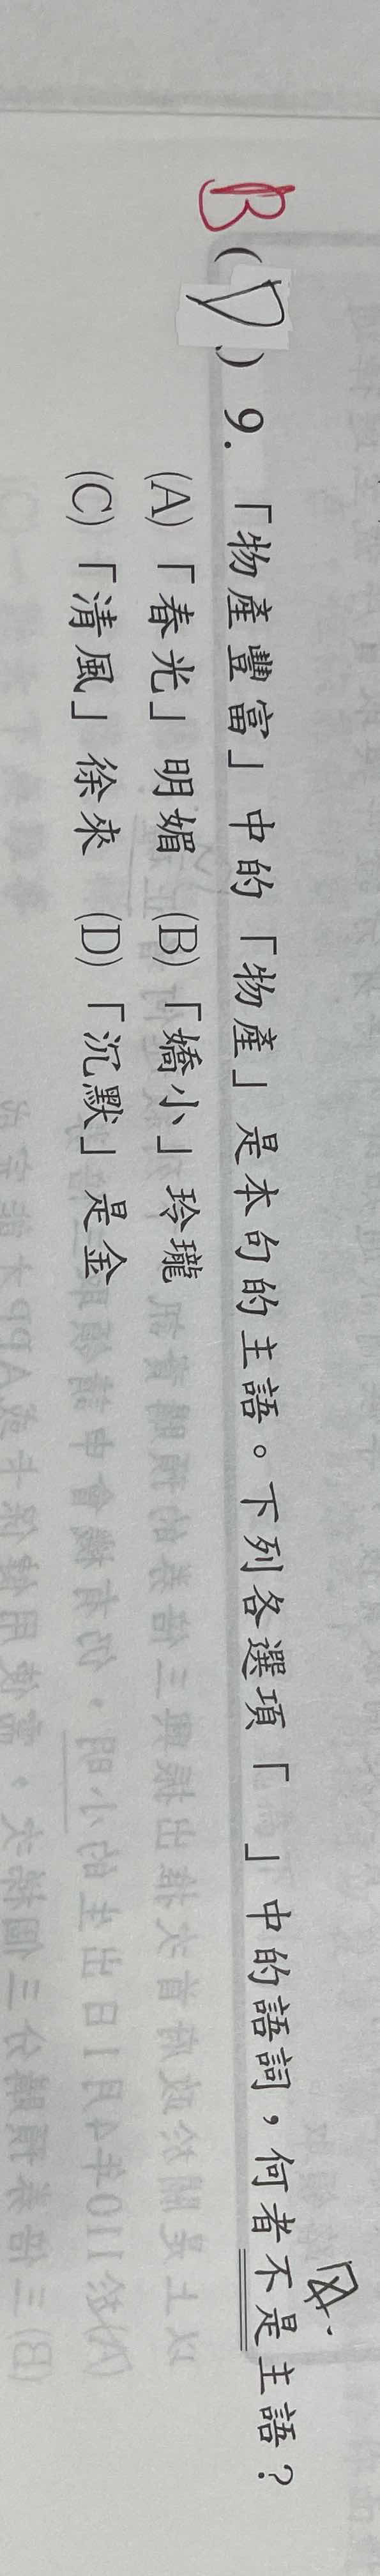 B
( D ) 9. 「物產豐富」中的「物產」是本句的主語。下列各選項「 」中的語詞，何者不是主語？
(A)「春光」明媚 (B)「嬌小」玲瓏
(C)「清風」徐來 (D)「沉默」是金